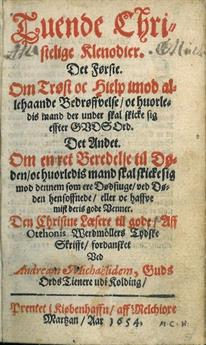 Tuende Chri-
stelige Klenodier.
Det Første.
Om Trøst oc Hielp imod al-
lehaande Bedrøffvelse / oc huorle-
dis mand der under skal skicke sig
effter GUDS Ord.
Det Andet.
Om en ret Beredelse til Dø-
den / oc huorledis mand skal skicke sig
mod dennem som ere Dødsiuge / ved Dø-
den hensoffnede / eller oc haffve
mist deris gode Venner.
Den Christne Læsere til gode / Aff
Otthonis Werdmöllers Tydske
Skrifft / fordansket
Ved
Andream Michaëlidem, Guds
Ords Tienere udi Kolding /
Prentet i Kiøbenhaffn / aff Melchior
Martzan / Aar 1654.
M. C. N.